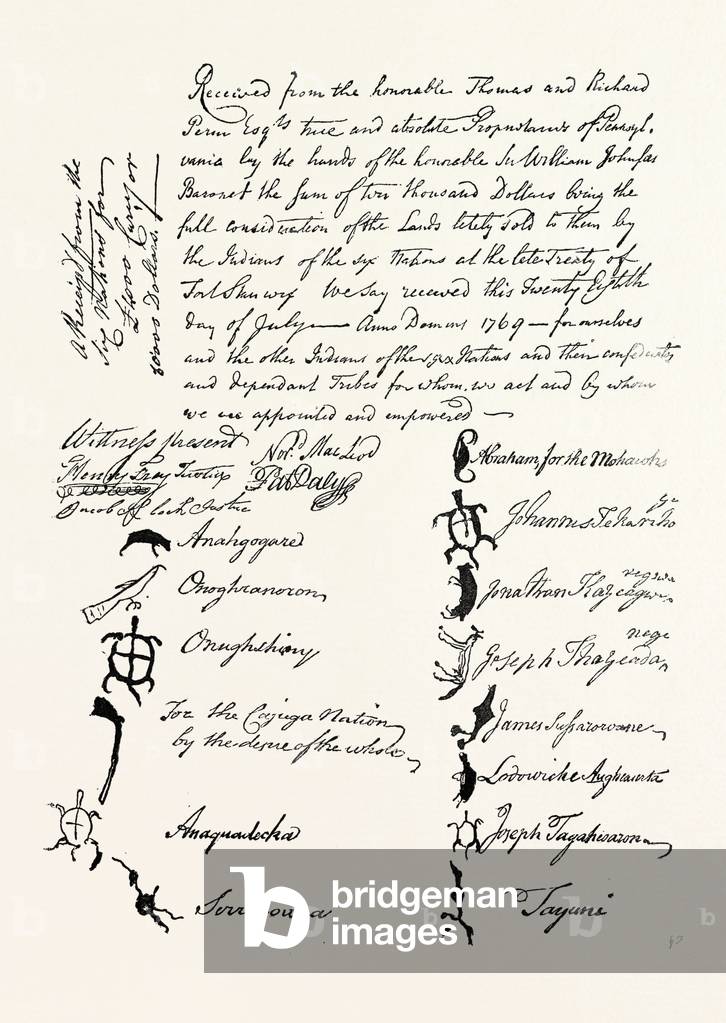 Received from the honorable Thomas and Richard
Penn Esqrs true and absolute Proprietaries of Pennsyl-
vania by the hands of the honorable Sir William Johnson
Baronet the sum of ten thousand Dollars being the
full consideration of the Lands lately sold to them by
the Indians of the six Nations at the late Treaty of
Fort Stanwix We say received this Twenty Eighth
day of July Anno Domini 1769 — for ourselves
and the other Indians of the six Nations and their confederates
and dependant Tribes for whom we act and by whom
we are appointed and empowered —
a Receipt from the
Six Nations for
10000 Dollars.
Witness present
Nord. MacLeod
Pat Daly
Henry Justice
Abraham for the Mohawks
Johannes
Anahgogare
Onoghranoron
Jonathan
Joseph
James
For the Cajuga Nation
by the desire of the whole
Lodowicke
Anaquadecka
Joseph Tagahisaron
Tayuni
bridgeman
images